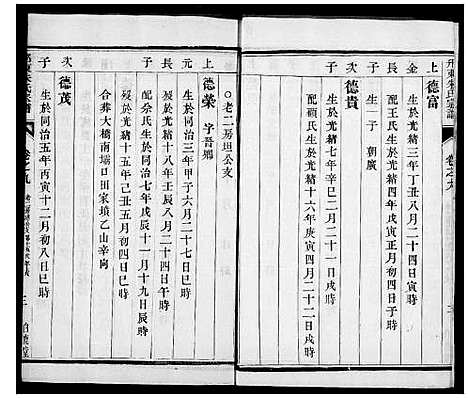 丹東朱氏宗譜
卷之九
上 金 次 子
德富
生於光緒三年丁丑八月二十二日戌時
配王氏生於光緒十六年庚寅正月初三日戌時
子 朝廣
德貴
生於光緒 年 二月二十一日戌時
配顧氏生於光緒十六年庚寅四月二十二日戌時
上 元 長 子 次 子
○老二房坦公支
德榮 字晉鄉
生於同治三年甲子六月二十七日戌時
歿於光緒十八年壬辰八月二十四日午時
配朵氏生於同治七年戊辰十一月十九日辰時
歿於光緒十五年己丑五月初六日巳時
合葬大橋南埽口田家墳乙山辛向
德茂
生於同治五年丙寅十二月初八日巳時
卷之九
三